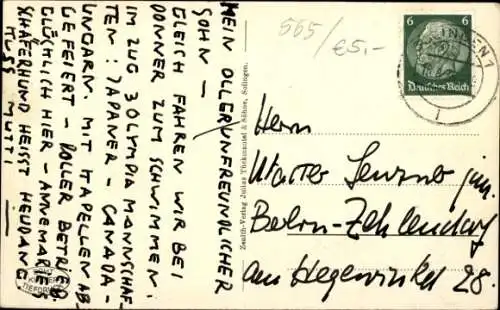 MEIN OLLER UNFREUNDLICHER
SOHN –
GLEICH FAHREN WIR BEI
DONNER ZUM SCHWIMMEN.
IM ZUG 3 OLYMPIA MANNSCHAF-
TEN: JAPANER – CANADA –
UNGARN. MIT KAPELLEN AB-
GELIEFERT – DOLLER BETRIEB.
GLÜCKLICH HIER – ANNEMARIES
SCHÄFERHUND HEISST HEUDANG
KUSS MUTTI
565/
€5.-
6 6
Deutsches Reich
1
Zenith-Verlag Julius Tückmantel & Söhne, Solingen.
Herrn
jun.
Berlin-Zehlendorf
am Hegewinkel 28.